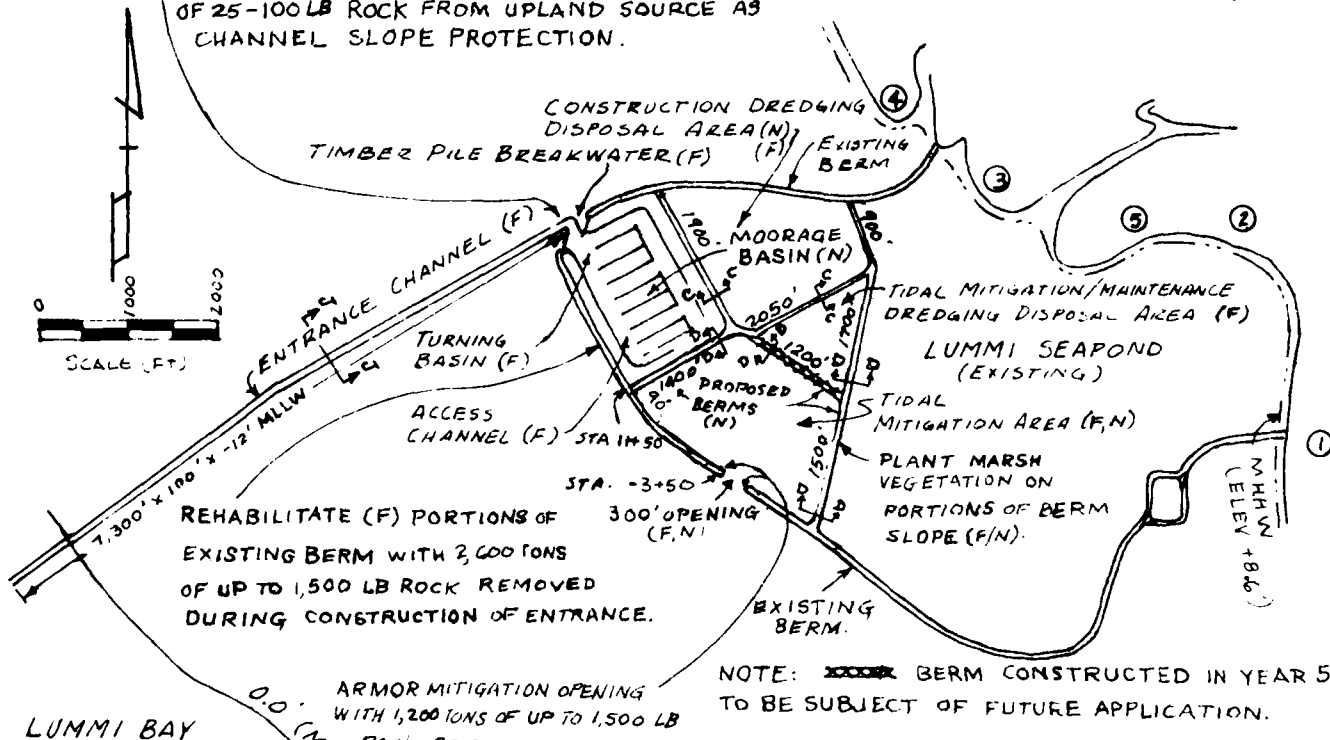 OF 25-100 LB ROCK FROM UPLAND SOURCE AS
CHANNEL SLOPE PROTECTION.
CONSTRUCTION DREDGING
DISPOSAL AREA (N)
(F)
TIMBER PILE BREAKWATER (F)
EXISTING
BERM
4
3
5
2
1
0
1000
2000
SCALE (FT)
ENTRANCE CHANNEL (F)
7,300' X 100' X -12' MLLW
1900
900
MOORAGE
BASIN (N)
C
C
2050'
1700'
1200'
TIDAL MITIGATION/MAINTENANCE
DREDGING DISPOSAL AREA (F)
LUMMI SEAPOND
(EXISTING)
TURNING
BASIN (F)
ACCESS
CHANNEL (F)
1400'
90'
PROPOSED
BERMS
(N)
TIDAL
MITIGATION AREA (F,N)
STA 11+50
STA. -3+50
300' OPENING
(F,N)
1500'
PLANT MARSH
VEGETATION ON
PORTIONS OF BERM
SLOPE (F/N).
MHHW
(ELEV +8.6)
REHABILITATE (F) PORTIONS OF
EXISTING BERM WITH 2,600 TONS
OF UP TO 1,500 LB ROCK REMOVED
DURING CONSTRUCTION OF ENTRANCE.
EXISTING
BERM.
NOTE: BERM CONSTRUCTED IN YEAR 5
TO BE SUBJECT OF FUTURE APPLICATION.
0.0
ARMOR MITIGATION OPENING
WITH 1,200 TONS OF UP TO 1,500 LB
LUMMI BAY